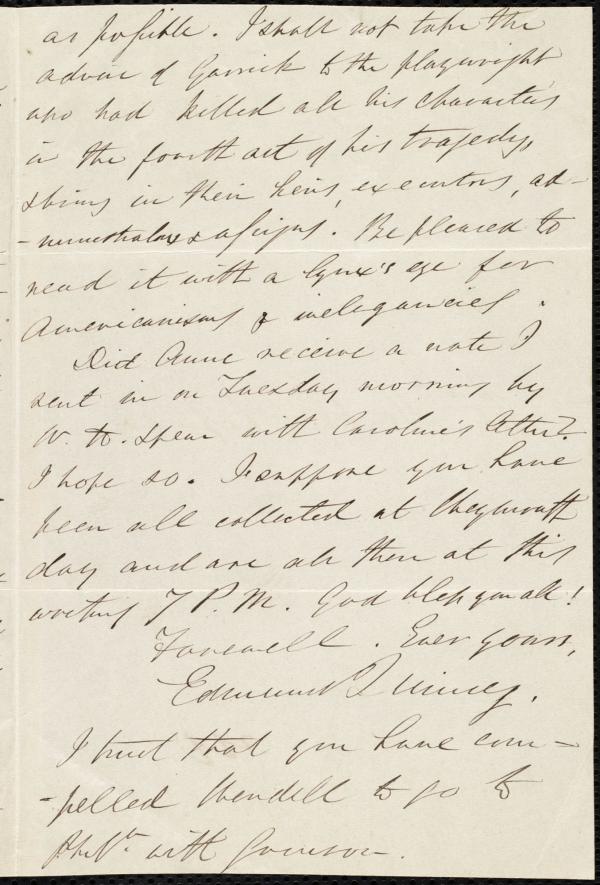 as possible. I shall not take the
advice of Garrick to the playwright
who had killed all his characters
in the fourth act of his tragedy,
& bring in their heirs, executors, ad-
-ministrators & assigns. Be pleased to
read it with a lynx's eye for
Americanisms & inelegancies.
Did Anne receive a note I
sent in on Tuesday morning by
W. H. Spear with Caroline's letter?
I hope so. I suppose you have
been all collected at Weymouth
day and are all then at this
writing 7 P. M. God bless you all!
Farewell. Ever yours,
Edmund Quincy.
I trust that you have com-
-pelled Wendell to go to
with Garrison.